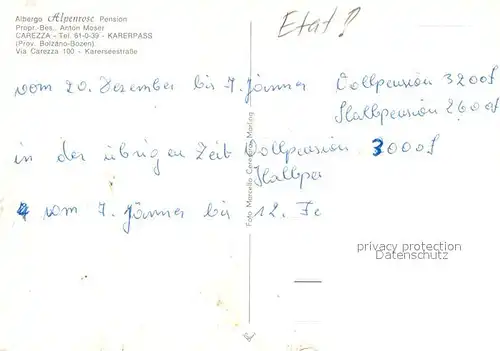 Albergo Alpenrose Pension
Propr.-Bes.. Anton Moser
CAREZZA - Tel. 61-0-39 - KARERPASS
(Prov. Bolzano-Bozen)
Via Carezza 100 - Karerseestraße
Etat!
vom 20. Dezember bis 7. Jänner Vollpension 3200£
Halbpension 2600£
in der übrigen Zeit Vollpension 3000£
Halbpe
vom 7. Jänner bis 12. Fe
Foto Marcello Merling
privacy protection
Datenschutz